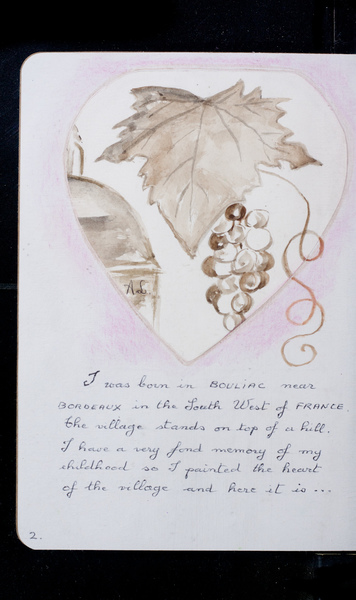 I was born in BOULIAC near
BORDEAUX in the South West of FRANCE.
The village stands on top of a hill.
I have a very fond memory of my
childhood so I painted the heart
of the village and here it is ...
2.